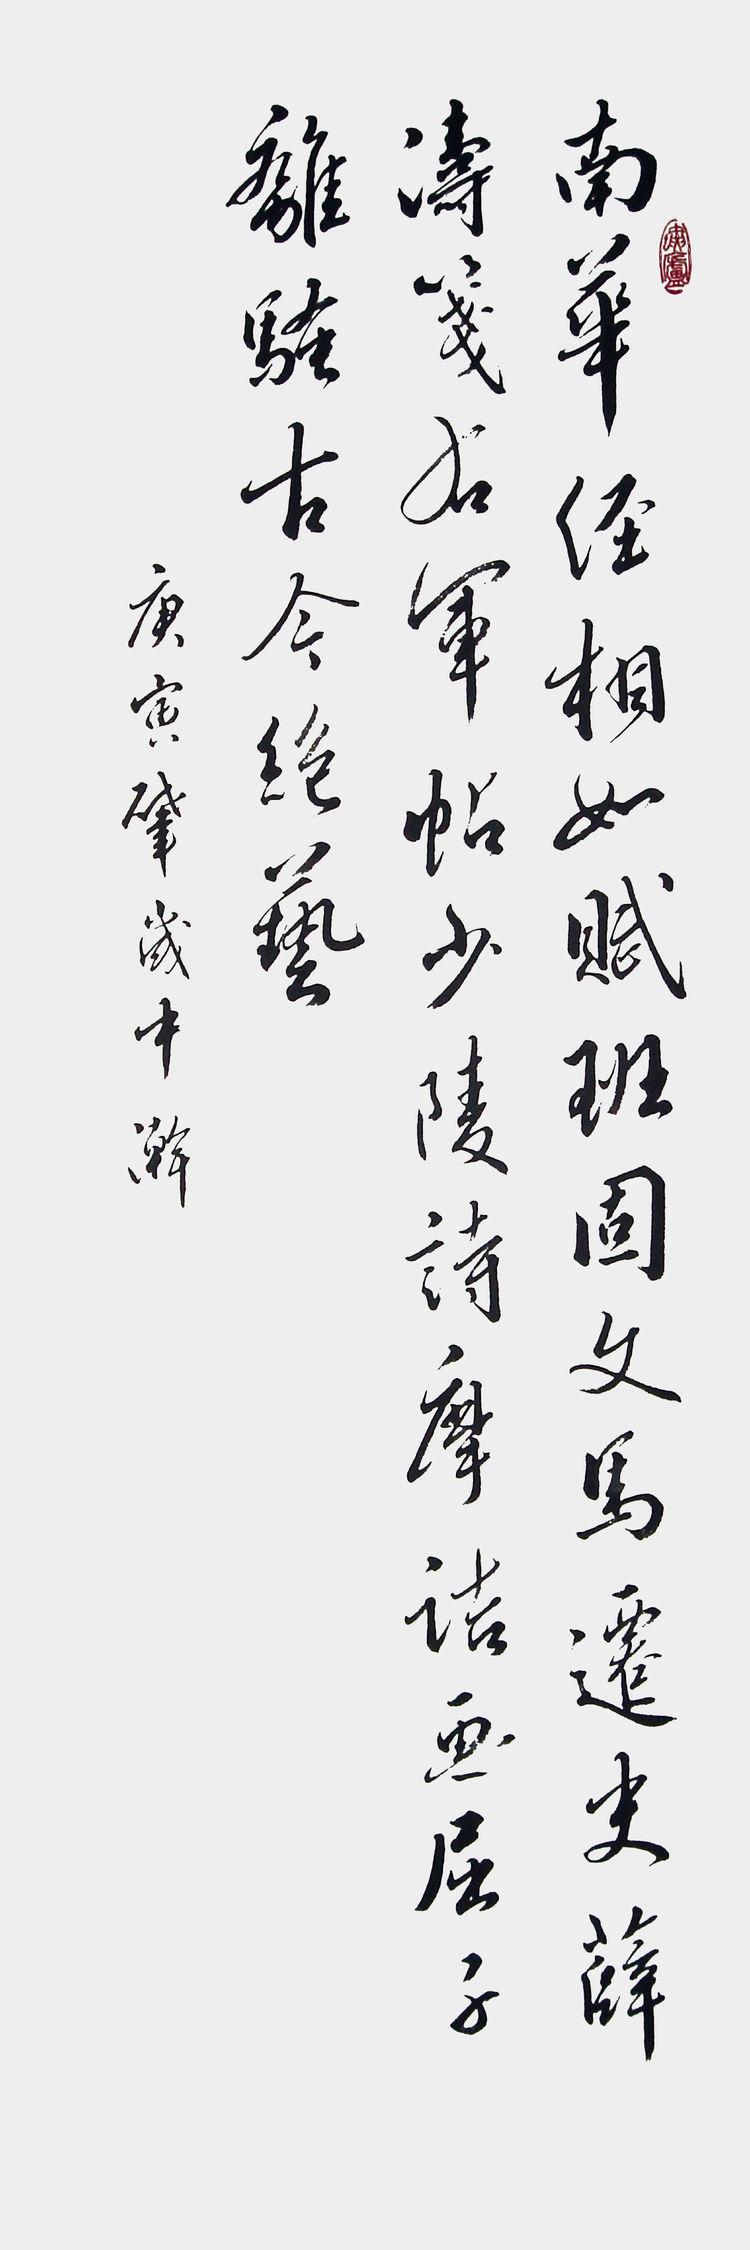 南華経相如賦班固文馬遷史薛
濤箋右軍帖少陵詩摩詰画屈子
離騷古今絶藝
庚寅肇歲中瀚